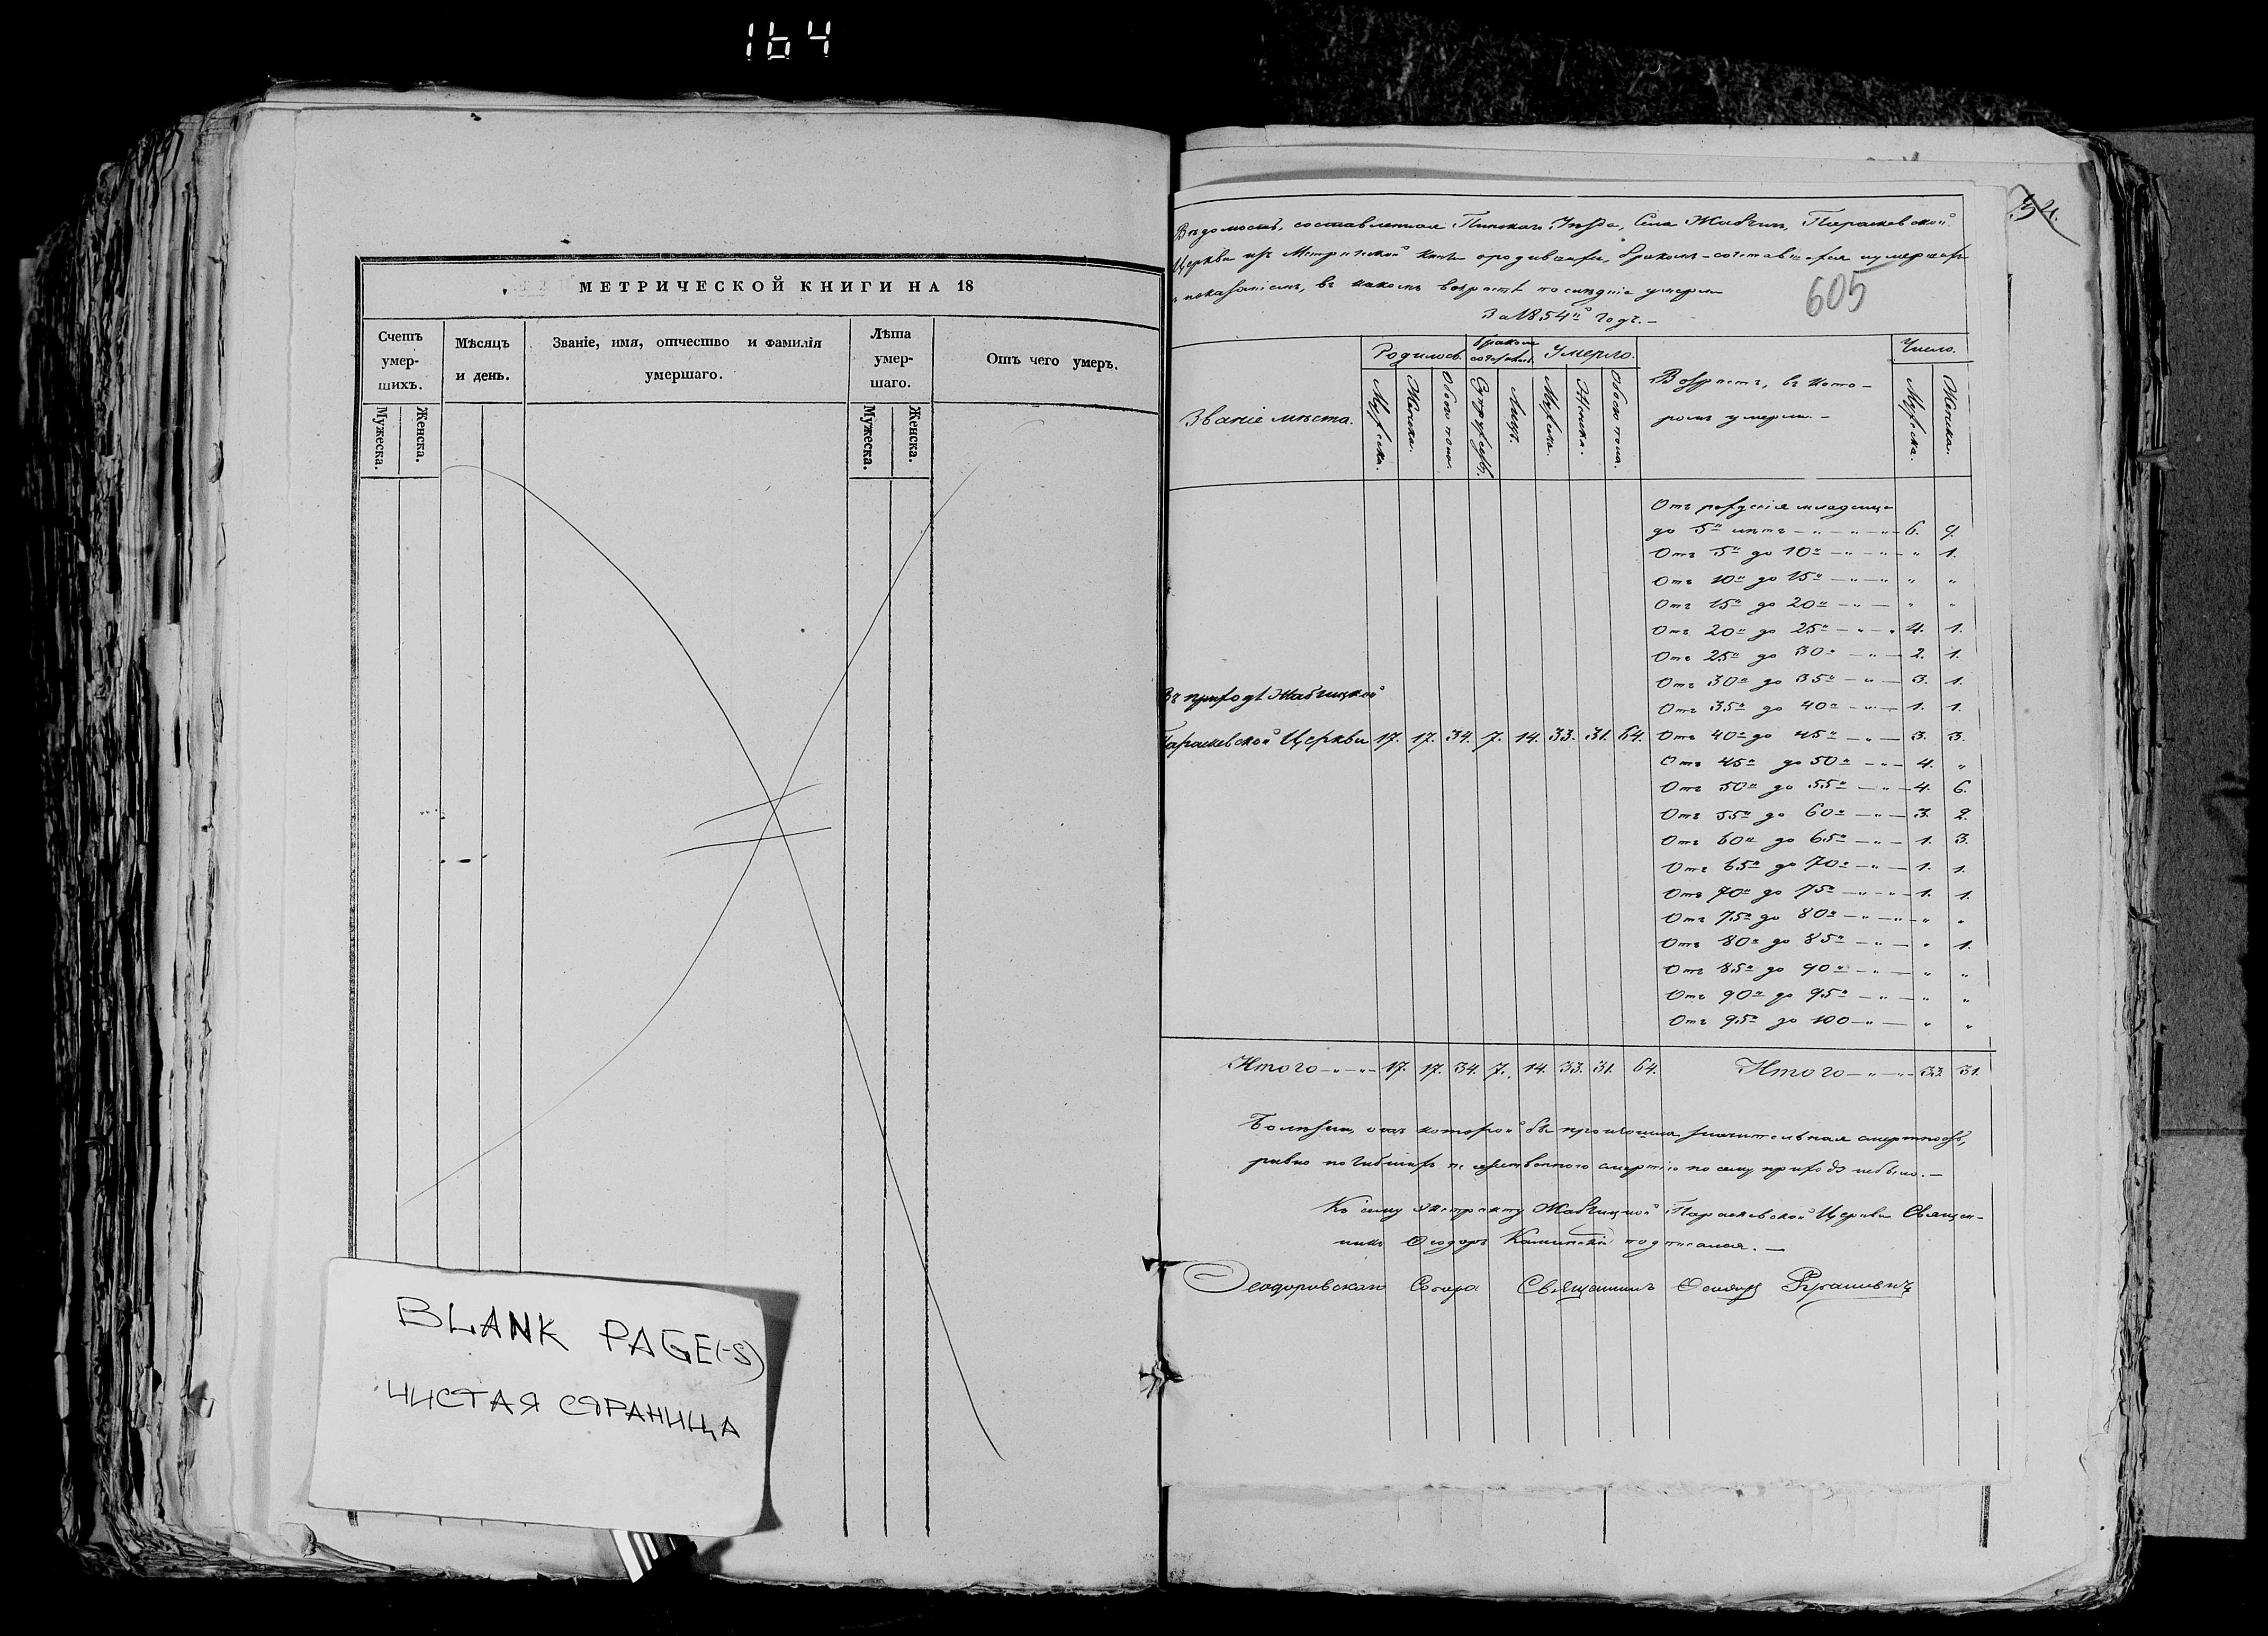 164
МЕТРИЧЕСКОЙ КНИГИ НА 18
Счетъ умер-шихъ.
Мѣсяцъ и день.
Званіе, имя, отчество и фамилія умершаго.
Лѣта умер-шаго.
Отъ чего умеръ.
Мужеска.
Женска.
Мужеска.
Женска.
BLANK PAGE(-S)
ЧИСТАЯ СТРАНИЦА
54.
Вѣдомость, составленная Пинскаго Уѣзда, Села Жабчичь, Параскевской
Церкви изъ Метрической книги о родившихся, бракомъ-сочетавшихся и умершихъ
съ показаніемъ, въ какомъ возрастѣ послѣдніе умерли
605
За 1854й годъ.-
Званіе мѣста.
Родилось.
Бракомъ сочетались.
Умерло.
Возрастъ, въ кото-
ромъ умерли.-
Число.
Мужеска.
Женска.
Обоего пола.
Супружествъ.
Лицъ.
Мужеска.
Женска.
Обоего пола.
Мужеска.
Женска.
Отъ рожденія младенца
до 5и лѣтъ 6. 9.
Отъ 5и до 10и " 1.
Отъ 10и до 15и " "
Отъ 15и до 20и " "
Отъ 20и до 25и 4. 1.
Отъ 25и до 30и 2. 1.
Отъ 30и до 35и 3. 1.
Отъ 35и до 40и 1. 1.
Въ приходѣ Жабчицкой
Параскевской Церкви 17. 17. 34. 7. 14. 33. 31. 64. Отъ 40и до 45и 3. 3.
Отъ 45и до 50и 4. "
Отъ 50и до 55и 4. 6.
Отъ 55и до 60и 3. 2.
Отъ 60и до 65и 1. 3.
Отъ 65и до 70и 1. 1.
Отъ 70и до 75и 1. 1.
Отъ 75и до 80и " "
Отъ 80и до 85и " 1.
Отъ 85и до 90и " "
Отъ 90и до 95и " "
Отъ 95и до 100 " "
Итого 17. 17. 34. 7. 14. 33. 31. 64. Итого 33. 31.
Болѣзни, отъ которой бы произошла значительная смертность,
равно погибшихъ не естественною смертію по сему приходу небыло.-
Къ сему экстракту Жабчицкой Параскевской Церкви Священ-
никъ Ѳеодоръ Каминскій подписался.-
Ѳеодоровскаго Собора Священникъ